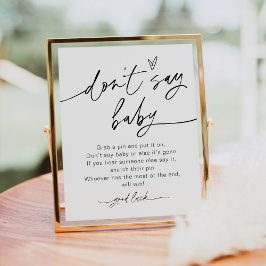 don't say
baby
Grab a pin and put it on,
Don't say baby or else it's gone
If you hear someone else say it,
snatch their pin
Whoever has the most at the end,
will win!
good luck